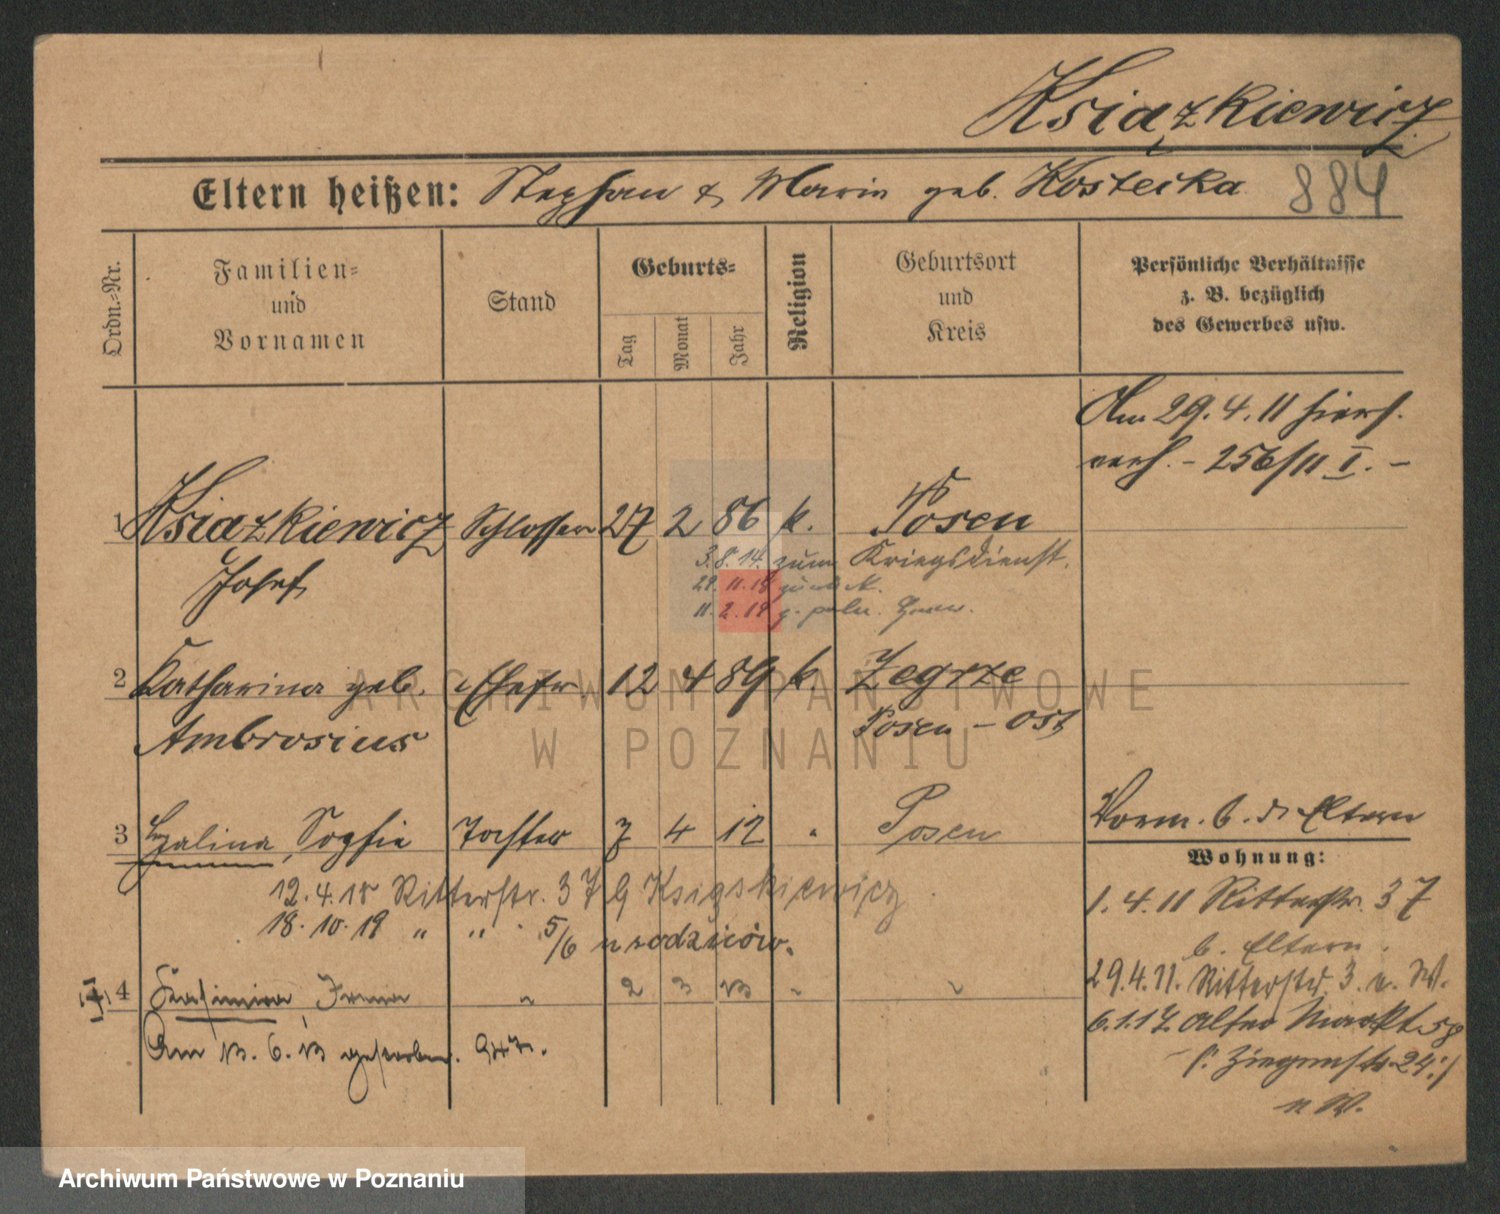 Książkiewicz
Eltern heißen: Stephan & Marie geb. Kostecka 884
Ordn.-Nr.
Familien-
und
Vornamen
Stand
Geburts-
Tag
Monat
Jahr
Religion
Geburtsort
und
Kreis
Persönliche Verhältnisse
z. B. bezüglich
des Gewerbes usw.
Am 29. 4. 11 hiers.
verh. - 256/11 I. -
1 Ksiazkiewicz Schlosser 27 2 86 k. Posen
Josef
3. 8. 14. zum Kriegsdienst.
29. 11. 18 zurück.
11. 2. 19 z. poln.
2 Katharina geb. Ehefr. 12 4 89 k. Zegrze
Ambrosius Posen - Ost
3 Halina, Sophie Tochter 7 4 12 " Posen
Vorm. b. d. Eltern
Wohnung:
12. 4. 18 Ritterstr. 37 b Książkiewicz
18. 10. 19 " " 5/6 u rodziców.
1. 4. 11 Ritterstr. 37
b. Eltern.
29. 4. 11. Ritterstr. 3. e. W.
6. 1. 12 Alter Markt 58
/: Ziegenstr. 24 :/
e W.
4 Kasimira, Irena " 2 3 13 " "
Am 13. 6. 13 gestorben.
ARCHIWUM PAŃSTWOWE
W POZNANIU
Archiwum Państwowe w Poznaniu